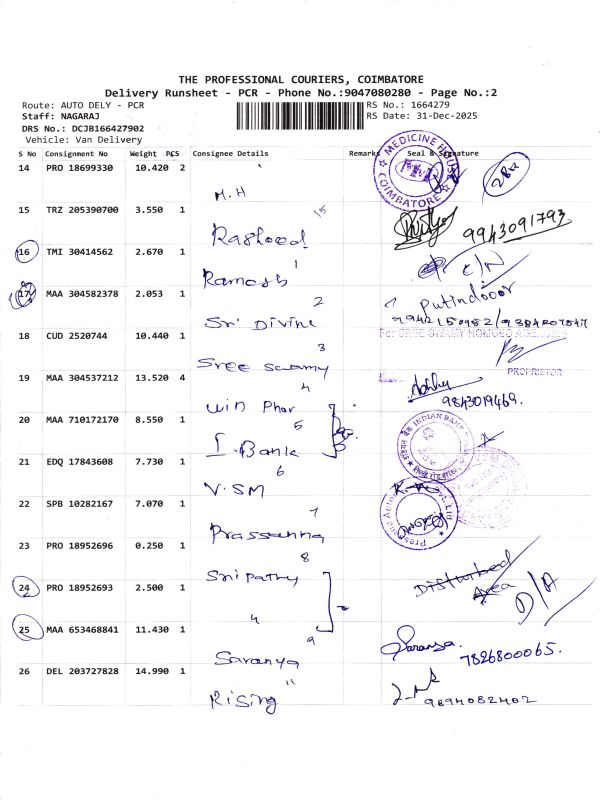 THE PROFESSIONAL COURIERS, COIMBATORE
Delivery Runsheet - PCR - Phone No.:9047080280 - Page No.:2
Route: AUTO DELY - PCR RS No.: 1664279
Staff: NAGARAJ RS Date: 31-Dec-2025
DRS No.: DCJB166427902
Vehicle: Van Delivery
S No Consignment No Weight PCS Consignee Details Remarks Seal & Signature
14 PRO 18699330 10.420 2
MEDICINE HOUSE COIMBATORE
M.H
15 TRZ 205390700 3.550 1
15
Rasheed 9943091793
16 TMI 30414562 2.670 1
1 C/N
Ramesh
17 MAA 304582378 2.053 1
2 Putindooor
Sri Divine
18 CUD 2520744 10.440 1
For SREE SWAMY HOMOEO AGENCIES
3
Sree Swamy
PROPRIETOR
19 MAA 304537212 13.520 4
4
Win Phar 9843019469.
20 MAA 710172170 8.550 1
INDIAN BANK
5
I. Bank
21 EDQ 17843608 7.730 1
6
V.SM
22 SPB 10282167 7.070 1
7
Prassanna
23 PRO 18952696 0.250 1
8
Sripathy
24 PRO 18952693 2.500 1
Disturbed
Area
D/A
25 MAA 653468841 11.430 1
9
Saranya Saranya.
7826800065.
26 DEL 203727828 14.990 1
11
Rising 9894082402